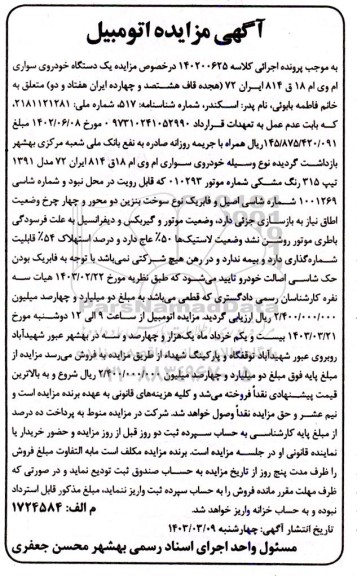 آگهی مزایده اتومبیل
به موجب پرونده اجرائی کلاسه ۱۴۰۲۰۰۶۲۵ درخصوص مزایده یک دستگاه خودروی سواری
وی ام ام ۱۸ ق ۸۱۴ ایران ۷۲ (هجده قاف هشتصد و چهارده ایران هفتاد و دو) متعلق به
خانم فاطمه بابوئی، نام پدر: اسکندر، شماره شناسنامه: ۵۱۷، شماره ملی: ۲۱۸۱۱۲۱۲۸۱،
که بابت عدم عمل به تعهدات قرارداد ۰۹۷۳۱۰۲۴۱۰۵۲۹۹۰ مورخ ۱۴۰۲/۰۶/۰۸ مبلغ
۱۴۵/۸۷۵/۴۲۰/۰۹۱ریال همراه با جریمه روزانه صادره به نفع بانک ملی شعبه مرکزی بهشهر
بازداشت گردیده نوع وسیله خودروی سواری ام وی ام ۱۸ق ۸۱۴ ایران ۷۲ مدل ۱۳۹۱
تیپ ۳۱۵ رنگ مشکی شماره موتور ۰۱۰۲۹۳ که قابل رویت در محل نبود و شماره شاسی
۱۰۰۱۲۶۹ شماره شاسی اصیل و فابریک نوع سوخت بنزین دو محور و چهار چرخ وضعیت
اطاق نیاز به بازسازی جزئی دارد، وضعیت موتور و گیربکس و دیفرانسیل به علت فرسودگی
باطری موتور روشن نشد وضعیت لاستیک‌ها ۵۰٪ عاج دارد و درصد استهلاک ۵۴٪ قابلیت
شماره‌گذاری دارد و بیمه ندارد و در رهن هیچ شرکتی نمی‌باشد با توجه به فابریک بودن
حک شاسی اصالت خودرو تایید می‌شود که طبق نظریه مورخ ۱۴۰۳/۰۲/۲۲ هیات سه
نفره کارشناسان رسمی دادگستری که قطعی می‌باشد به مبلغ دو میلیارد و چهارصد میلیون
۲/۴۰۰/۰۰۰/۰۰۰ ریال ارزیابی گردید. مزایده اتومبیل از ساعت ۹ الی ۱۲ دوشنبه مورخ
۱۴۰۳/۰۳/۲۱ بیست و یکم خرداد ماه یک‌هزار و چهارصد و سه در بهشهر عبور شهیدآباد
روبروی عبور شهیدآباد توقفگاه و پارکینگ شهداء از طریق مزایده به فروش می‌رسد مزایده از
مبلغ پایه فوق مبلغ دو میلیارد و چهارصد میلیون ۲/۴۰۰/۰۰۰/۰۰۰ ریال شروع و به بالاترین
قیمت پیشنهادی نقداً فروخته می‌شد و کلیه هزینه‌های قانونی به عهده برنده مزایده است و
نیم عشر و حق مزایده نقداً وصول خواهد شد. شرکت در مزایده منوط به پرداخت ده درصد
از مبلغ پایه کارشناسی به حساب سپرده ثبت دو روز قبل از روز مزایده و حضور خریدار یا
نماینده قانونی او در جلسه مزایده است. برنده مزایده مکلف است مابه التفاوت مبلغ فروش
را ظرف مدت پنج روز از تاریخ مزایده به حساب صندوق ثبت تودیع نماید و در صورتی که
ظرف مهلت مقرر مانده فروش را به حساب سپرده ثبت واریز ننماید، مبلغ مذکور قابل استرداد
نبوده و به حساب خزانه واریز خواهد شد. م الف: ۱۷۲۴۵۸۴
تاریخ انتشار آگهی: چهارشنبه ۱۴۰۳/۰۳/۰۹
مسئول واحد اجرای اسناد رسمی بهشهر محسن جعفری